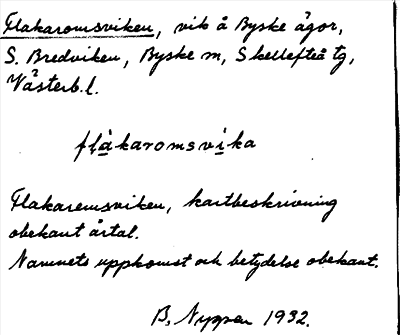 Flakaromsviken, vik å Byske ägor,
S. Bredviken, Byske sn, Skellefteå tg,
Västerb. l.
flákaromsvíka
Flakaremsviken, kartbeskrivning
obekant årtal.
Namnets uppkomst och betydelse obekant.
B. Nyppen 1932.